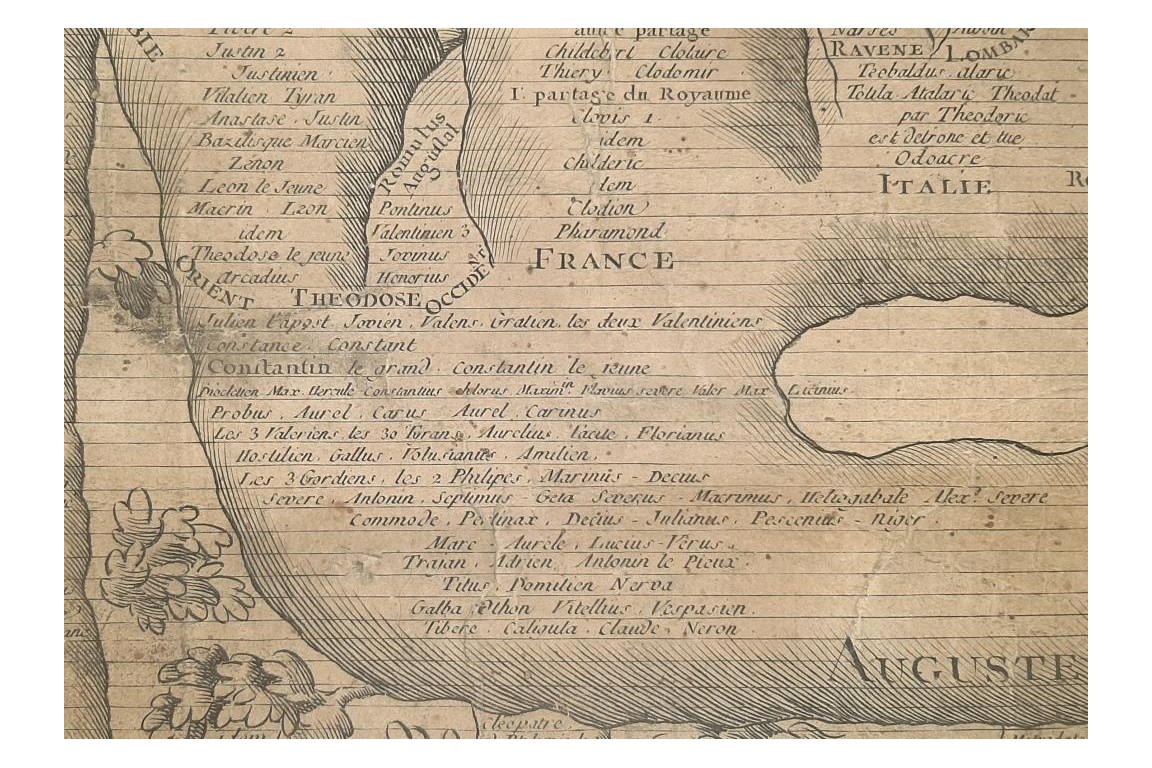 BIE
Tibere 2
Justin 2
Justinien
Vitalien Tyran
Anastase . Justin
Bazilisque Marcien
Zenon
Leon le Jeune
Macrin . Leon
idem
Theodose le jeune
Arcadius
ORIENT
Romulus
Augustal
Pontinus
Valentinien 3
Jovinus
Honorius
OCCIDENT
THEODOSE
autre partage
Childebert Clotaire
Thiery Clodomir
I. partage du Royaume
Clovis 1.
idem
Childeric
idem
Clodion
Pharamond
FRANCE
Narses
RAVENE
LOMBAR
Teobaldus . alaric
Totila . Atalaric Theodat
par Theodoric
est detrone et tue
Odoacre
ITALIE
Julien l'apost . Jovien . Valens . Gratien . les deux Valentiniens
Constance . Constant
Constantin le grand . constantin le jeune
Diocletien Max . Hercule Constantius chlorus Maximin Flavius severe Valer Max Licinius
Probus . Aurel . Carus Aurel . Carinus
Les 3 Valeriens . les 30 Tyrans . Aurelius . Tacite . Florianus
Hostilien . Gallus . Volusiantes . Amilien .
Les 3 Gordiens . les 2 Philipes . Marinus - Decius
Severe . Antonin . Septimus - Geta Severus - Macrimus . Heliogabale Alexr. Severe
Commode . Pertinax . Decius - Julianus . Pescenius - niger .
Marc - Aurele . Lucius - Verus .
Traian . Adrien . Antonin le Pieux .
Titus . Domitien Nerva
Galba . Othon Vitellius . Vespasien .
Tibere . Caligula . Claude . Neron
AUGUSTE
Cleopatre .
idem